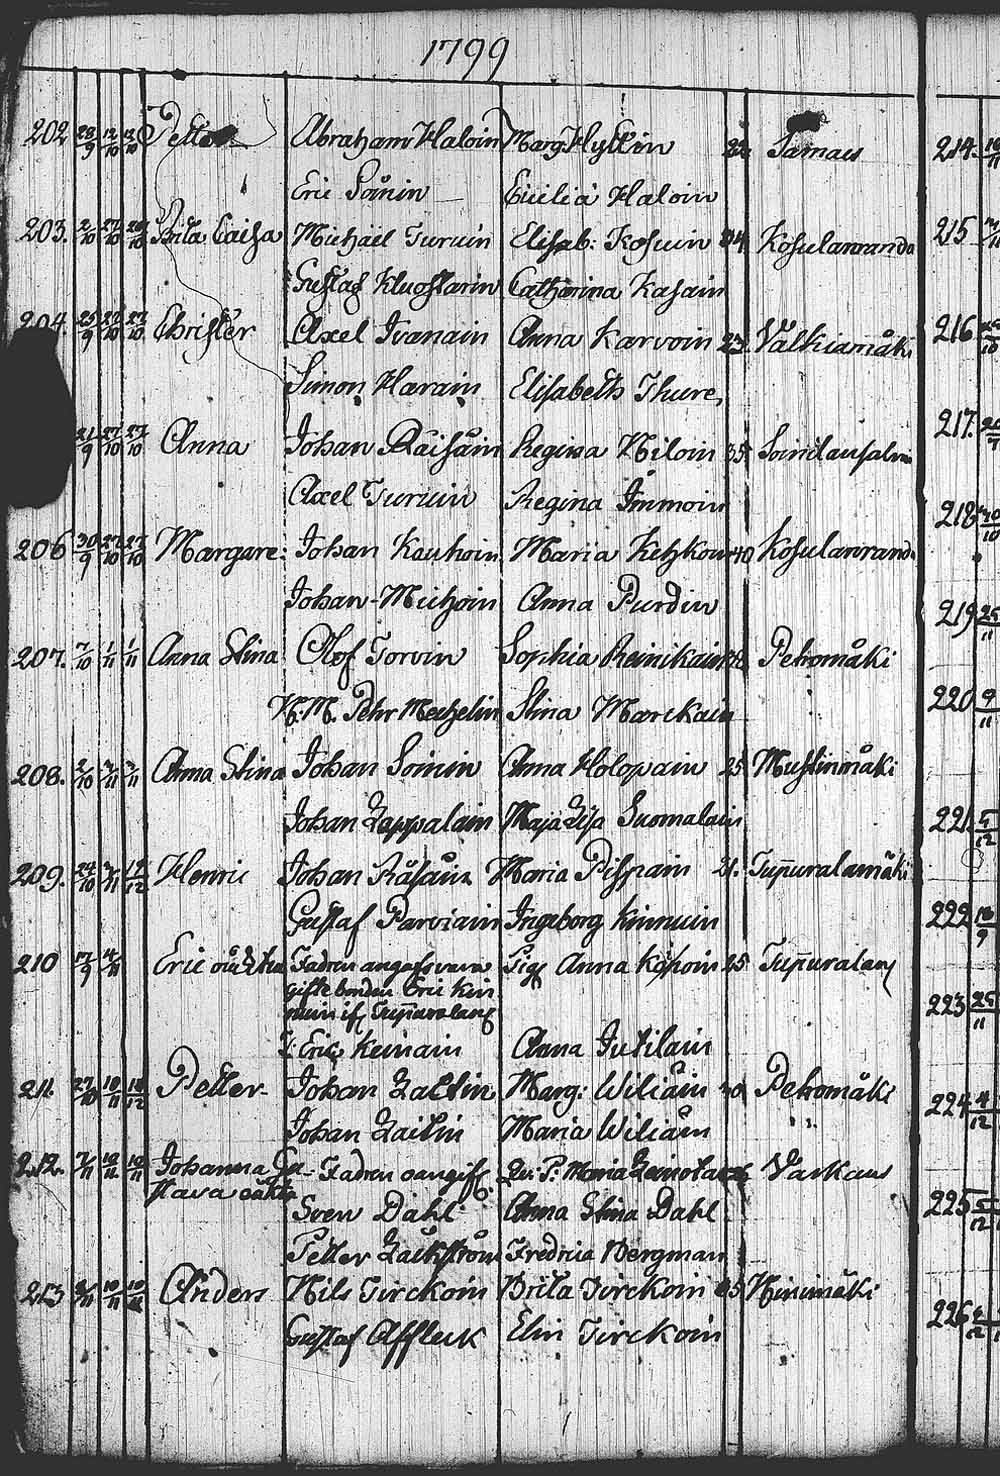 1799
202 28/9 12/10 13/10 Petter Abraham Haloin Marg. Hyttin Jamais
Eric Soinin Cicilia Haloin
203. 2/10 27/10 28/10 Brita Caisa Michael Turuin Elisab: Kosuin 34 Kosulanranda
Gustaf Kluostarin Catharina Kasain
204. 25/9 27/10 27/10 Christer Axel Ivanain Anna Karvoin 23 Valkiamäki
Simon Harain Elisabeth Thure
21/9 27/10 27/10 Anna Johan Räisäin Regina Niloin 35
Axel Turuin Regina Immoin
206 30/9 27/10 27/10 Margare: Johan Kauhoin Maria 40 Kosulanrand
Johan Michoin Anna Purdin
207. 7/10 1/11 1/11 Anna Stina Olof Torvin Sophia Reinikain Petromäki
H. M. Pehr Mechelin Stina Marckain
208. 2/10 3/11 3/11 Anna Stina Johan Soinin Anna Holopain 25 Mustinmäki
Johan Lappalain Maja Lisa Suomalain
209. 24/10 Henric Johan Räsäin Maria Pispain 21. Tuppuralamäki
Gustaf Parviain Ingeborg Kinnuin
210 17/9 4/11 Eric oäckta Fadren angafs vara Pig. Anna Köhoin 25 Tuppuralax
gifte bonden Eric Kin
nuin if. Tuppuralax
Eric Keinain Anna Jutilain
211. 27/10 10/11 10/12 Petter Johan Laitin Marg: Wiliäin 40 Petromäki
Johan Laitin Maria Wiliäin
212. 7/11 10/11 10/11 Johanna Gu- Fadren oangif. Qv: P: Maria Varkaus
stava oäkta
Sven Dahl Anna Stina Dahl
Petter Läckström Fredrica Bergman
213 10/11 Anders Nils Tirckoin Brita Tirckoin 35 Ninimäki
Gustaf Affleck Elin Tirckoin
214.
215
216
217.
218
219 25/11
220 9/11
221. 5/12
222
223 25/11
224 4/12
225 5/12
226